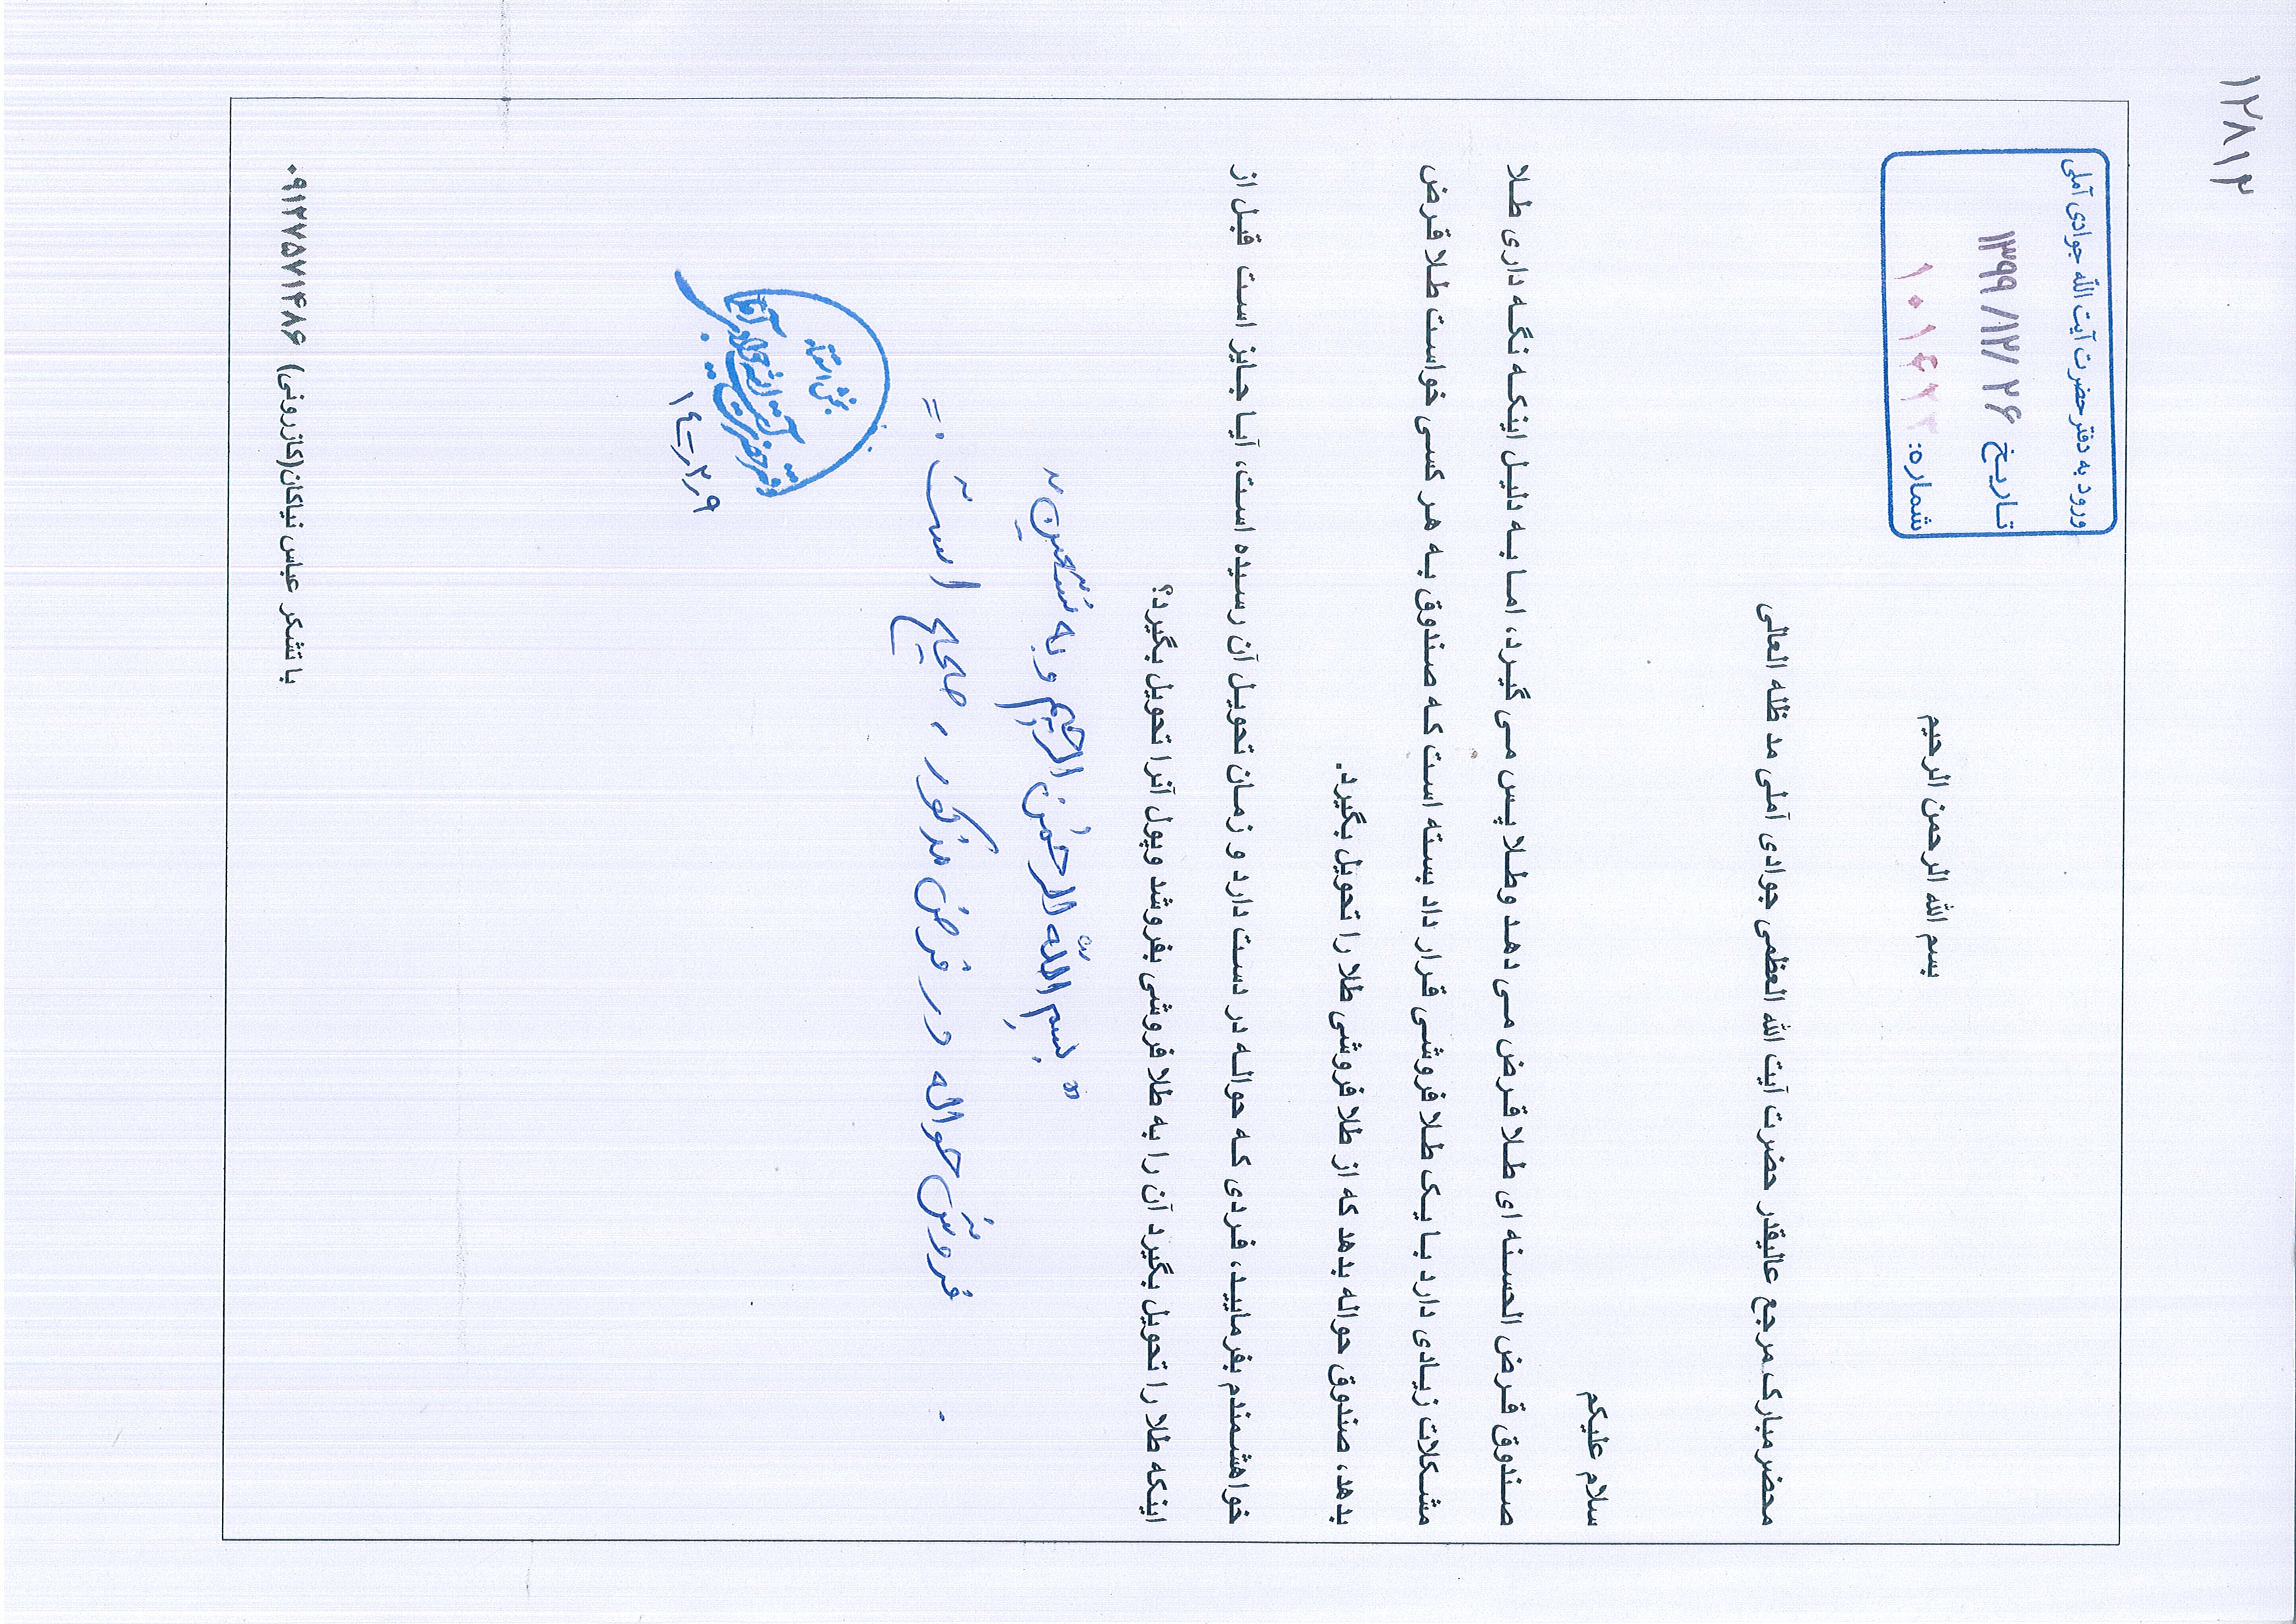 ۱۲۸۱۳
ورود به دفتر حضرت آیت الله جوادی آملی
تاریخ ۱۳۹۹/۱۲/۲۶
شماره: ۱۰۰۱۶
بسم الله الرحمن الرحیم
محضر مبارک مرجع عالیقدر حضرت آیت الله العظمی جوادی آملی مد ظله العالی
سلام علیکم
صندوق قرض الحسنه ای طلا قرض می دهد وطلا پس می گیرد، اما به دلیل اینکه نگه داری طلا
مشکلات زیادی دارد با یک طلا فروشی قرار داد بسته است که صندوق به هر کسی خواست طلا قرض
بدهد، صندوق حواله بدهد که از طلا فروشی طلا را تحویل بگیرد.
خواهشمندم بفرمایید، فردی که حواله در دست دارد و زمان تحویل آن رسیده است، آیا جایز است قبل از
اینکه طلا را تحویل بگیرد آن را به طلا فروشی بفروشد وپول آنرا تحویل بگیرد؟
"بسم الله الرحمن الرحیم و به نستعین"
فروش حواله در فرض مذکور، صحیح است.=
بخش استفتاء
دفتر حضرت آیت الله جوادی آملی
۱۴۰۰٫۲٫۹
با تشکر عباس نیاکان(کازرونی) ۰۹۱۲۷۵۷۱۴۸۶